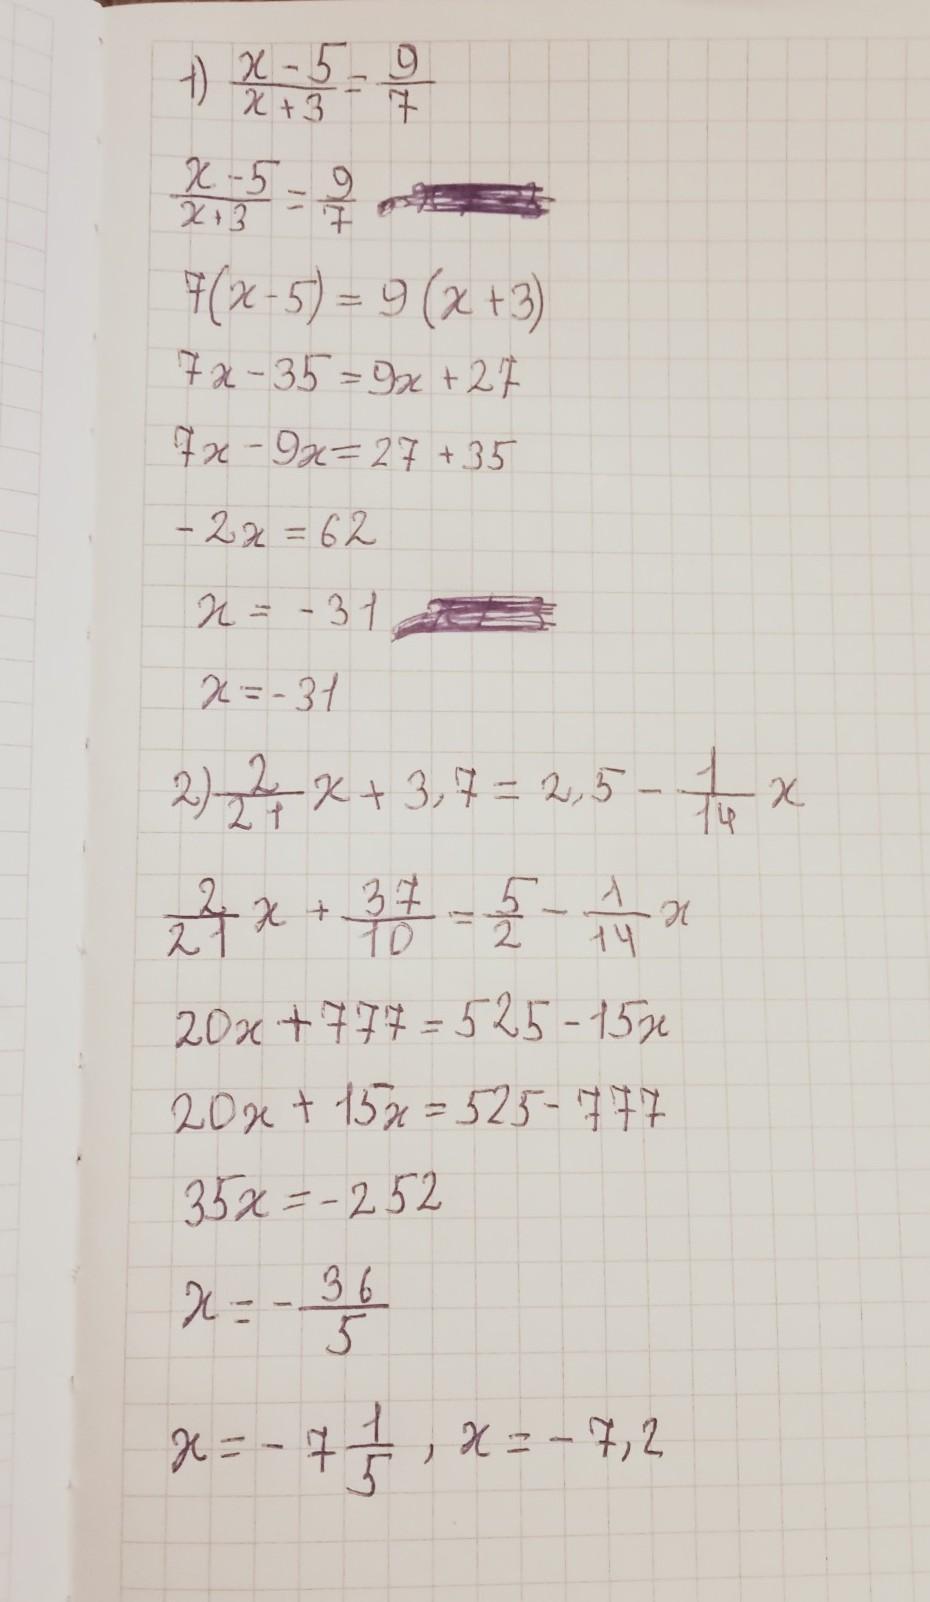 1) \frac{x-5}{x+3} = \frac{9}{7}
\frac{x-5}{x+3} = \frac{9}{7}
7(x-5) = 9(x+3)
7x - 35 = 9x + 27
7x - 9x = 27 + 35
-2x = 62
x = -31
x = -31
2) \frac{2}{21} x + 3,7 = 2,5 - \frac{1}{14} x
\frac{2}{21} x + \frac{37}{10} = \frac{5}{2} - \frac{1}{14} x
20x + 777 = 525 - 15x
20x + 15x = 525 - 777
35x = -252
x = -\frac{36}{5}
x = -7\frac{1}{5}, x = -7,2